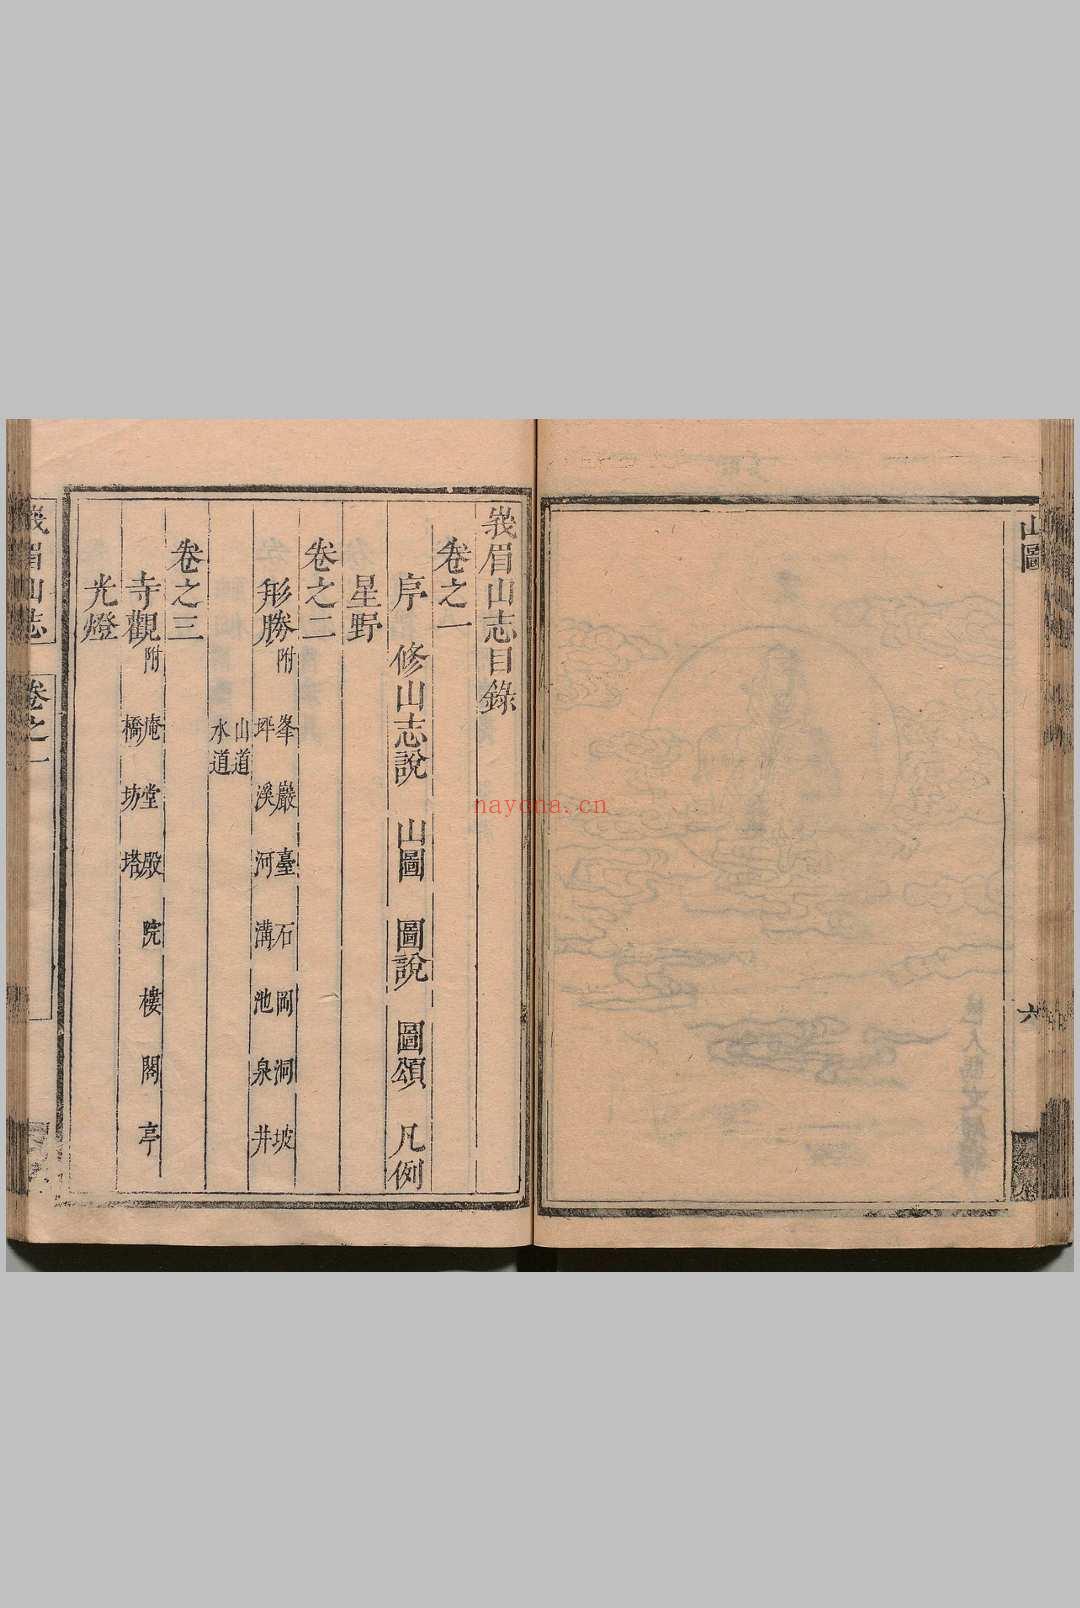 山圖
六
峩眉山志目錄
卷之一
序 修山志說 山圖 圖說 圖頌 凡例
星野
卷之二
形勝附 峯 巖 臺 石 岡 洞 坡
坪 溪 河 溝 池 泉 井
山道
水道
卷之三
寺觀附 庵 堂 殿 院 樓 閣 亭
橋 坊 塔
光燈
峩眉山志 卷之一
nayona.cn